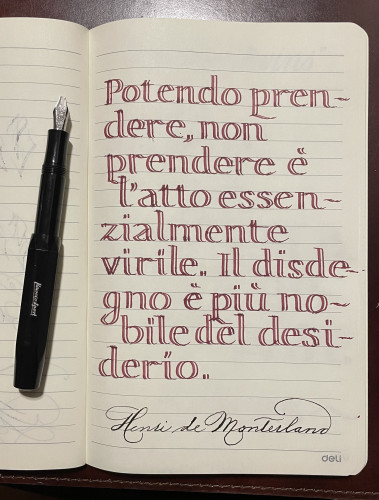 Potendo pren-
dere, non
prendere è
l'atto essen-
zialmente
virile. Il disde-
gno è più no-
bile del desi-
derio.
Henri de Monterland
deli